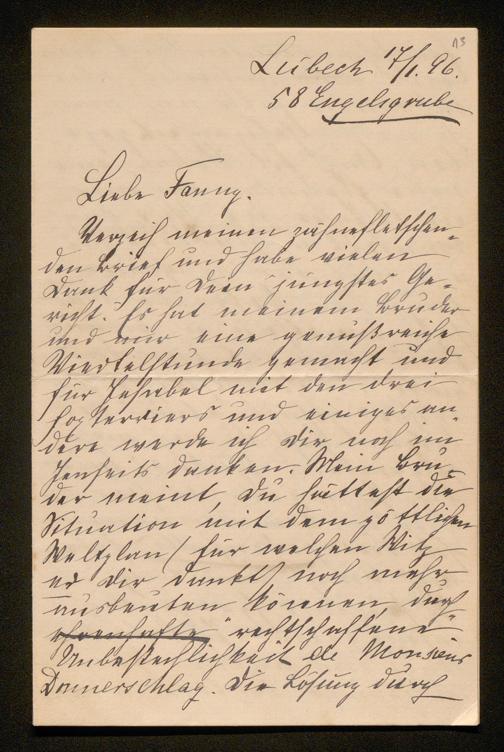 13
Lübeck 17/1. 96.
58 Engelsgrube
Liebe Fanny.
Verzeih meinen zähnefletschen-
den Brief und habe vielen
Dank für Dein jüngstes Ge-
richt. Es hat meinem Bruder
und mir eine genußreiche
Viertelstunde gemacht und
für Jesabel mit den drei
Foxterriers und einiges an-
dere werde ich Dir noch im
Jenseits danken. Mein Bru-
der meint, Du hättest die
Situation mit dem göttlichen
Weltplan (für welchen Witz
er Dir dankt) noch mehr
ausbeuten können, durch
ehrenhafte "rechtschaffene"
Unbestechlichkeit de Monsieur
Donnerschlag. Die Lösung durch